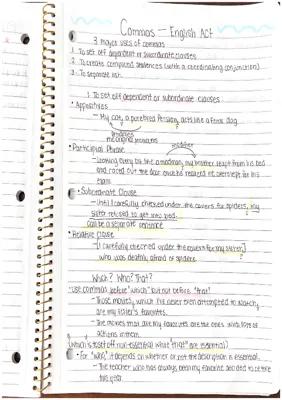 Commas — English Act
3 major uses of commas
1. To set off dependent or subordinate clauses
2. To create compound sentences (with a coordinating conjunction)
3. To separate list
1. To set off dependent or subordinate clauses:
• Appositives
– My cat, a purebred Persian, acts like a feral dog.
• Participial Phrase
modifier
– Looking every bit the madman, my brother leapt from his bed
and raced out the door once he realized he overslept for his
exam.
• Subordinate Clause
– Until I carefully checked under the covers for spiders, my
sister refused to get into bed.
can be a separate sentence
• Relative Clause
– I carefully checked under the covers for my sister,
who was deathly afraid of spiders.
Which? Who? That?
use commas before "which" but not before "that"
– Those movies, which I've never even attempted to watch,
are my sister's favorites.
– The movies that are my favorites are the ones with lots of
actions in them.
(which is set off non-essential what "that" are essential)
• For "who", it depends on whether or not the description is essential.
– The teacher who has always been my favorite decided to retire
this year.